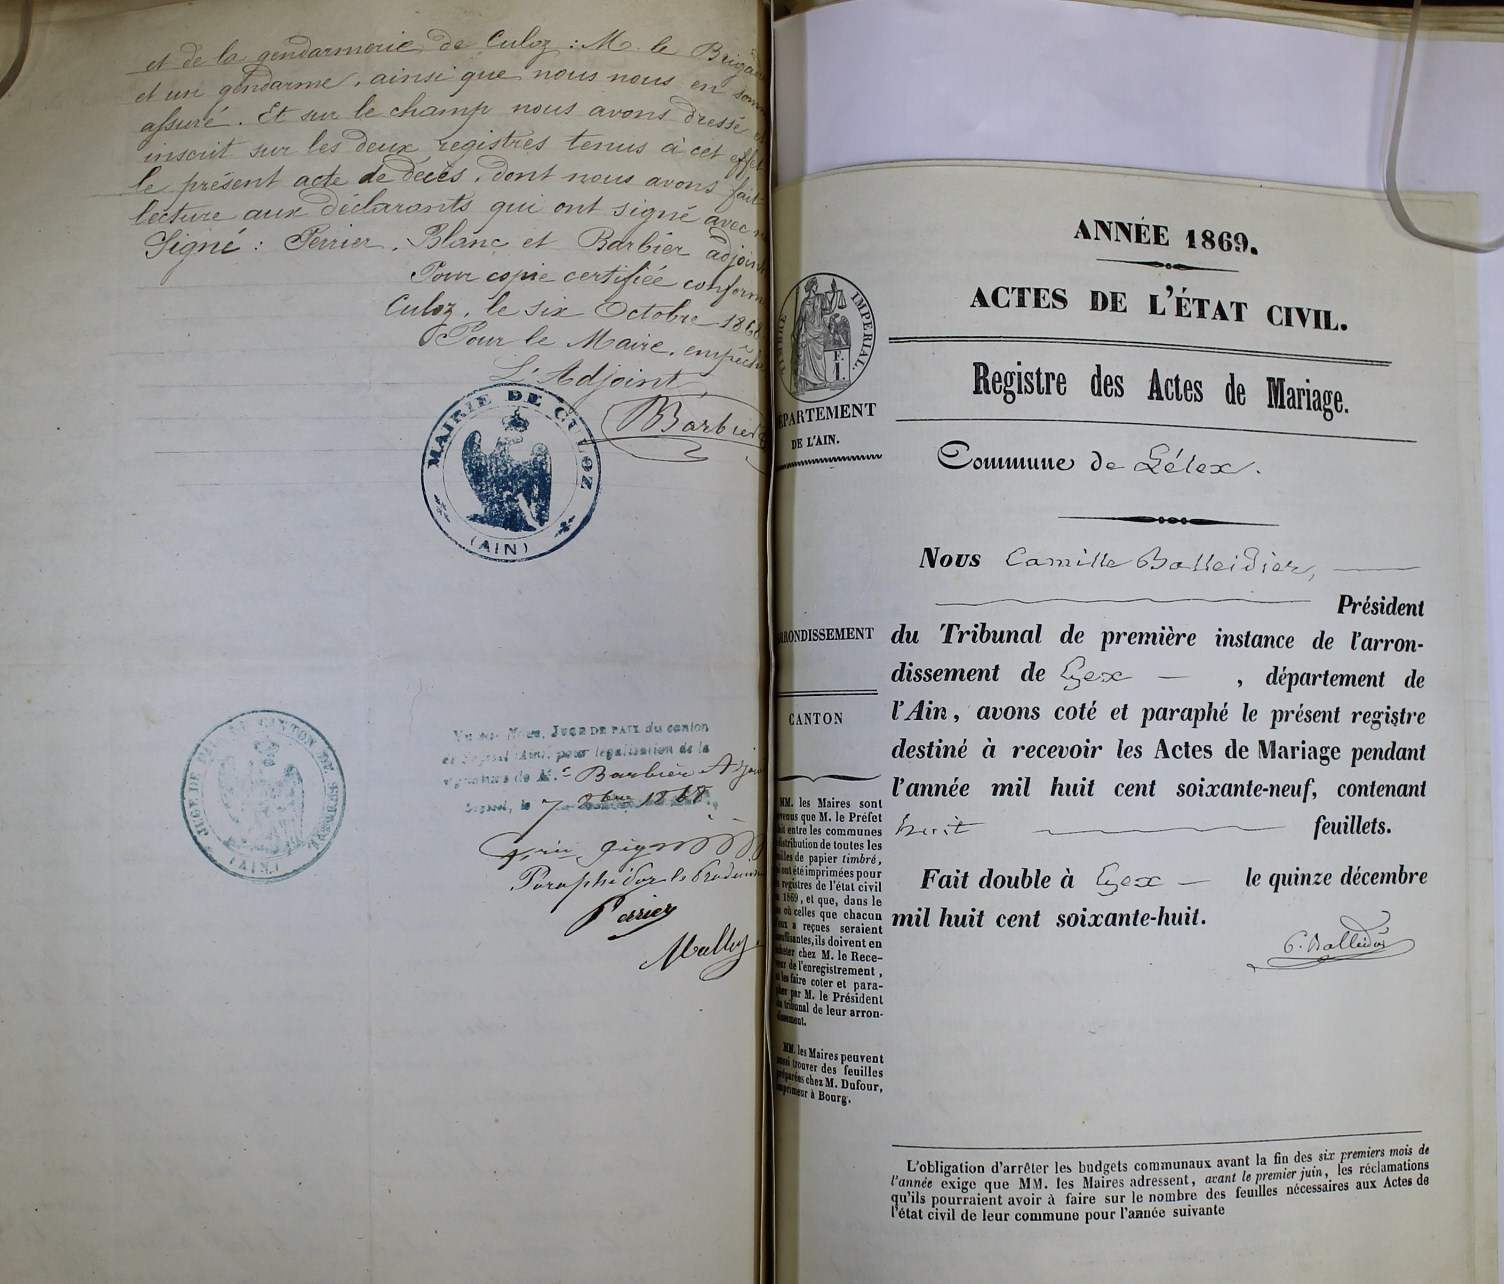 et de la gendarmerie de Culoz : M. le Brigad
et un gendarme, ainsi que nous nous en som
assuré. Et sur le champ nous avons dressé et
inscrit sur les deux registres tenus à cet effet
le présent acte de décès, dont nous avons fait
lecture aux déclarants qui ont signé avec n
Signé : Perrier, Blanc et Barbier adjoint
Pour copie certifiée conforme
Culoz, le six Octobre 1868
Pour le Maire, empêché
L'Adjoint
Barbier
MAIRIE DE CULOZ
(AIN)
JUGE DE PAIX DU CANTON DE SEYSSEL
(AIN)
Vu par Nous, JUGE DE PAIX du canton
de Seyssel (Ain), pour légalisation de la
signature de M. Barbier Adjoin
Seyssel, le 7 8bre 1868.
Paraphé par le
Perrier
ANNÉE 1869.
ACTES DE L'ÉTAT CIVIL.
TIMBRE IMPÉRIAL.
Registre des Actes de Mariage.
DÉPARTEMENT
DE L'AIN.
Commune de Lélex.
Nous Camille Balleidier,
Président
du Tribunal de première instance de l'arron-
dissement de Gex, département de
l'Ain, avons coté et paraphé le présent registre
destiné à recevoir les Actes de Mariage pendant
l'année mil huit cent soixante-neuf, contenant
huit feuillets.
Fait double à Gex le quinze décembre
mil huit cent soixante-huit.
C. Balleidier
ARRONDISSEMENT
CANTON
MM. les Maires sont
venus que M. le Préfet
fait entre les communes
distribution de toutes les
feuilles de papier timbré,
qui ont été imprimées pour
les registres de l'état civil
de 1869, et que, dans le
cas où celles que chacun
d'eux a reçues seraient
insuffisantes, ils doivent en
acheter chez M. le Rece-
veur de l'enregistrement,
et les faire coter et para-
pher par M. le Président
du tribunal de leur arron-
dissement.
MM. les Maires peuvent
aussi trouver des feuilles
préparées chez M. Dufour,
imprimeur à Bourg.
L'obligation d'arrêter les budgets communaux avant la fin des six premiers mois de
l'année exige que MM. les Maires adressent, avant le premier juin, les réclamations
qu'ils pourraient avoir à faire sur le nombre des feuilles nécessaires aux Actes de
l'état civil de leur commune pour l'année suivante